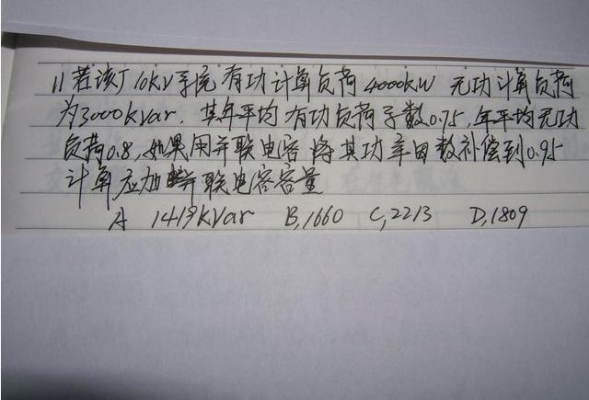 11 若该厂10kV系统 有功计算负荷4000kW 无功计算负荷
为3000kvar. 其年平均有功负荷系数0.75, 年平均无功
负荷0.8, 如果用并联电容 将其功率因数补偿到0.95
计算应加并联电容容量
A 1419kvar B,1660 C,2213 D,1809